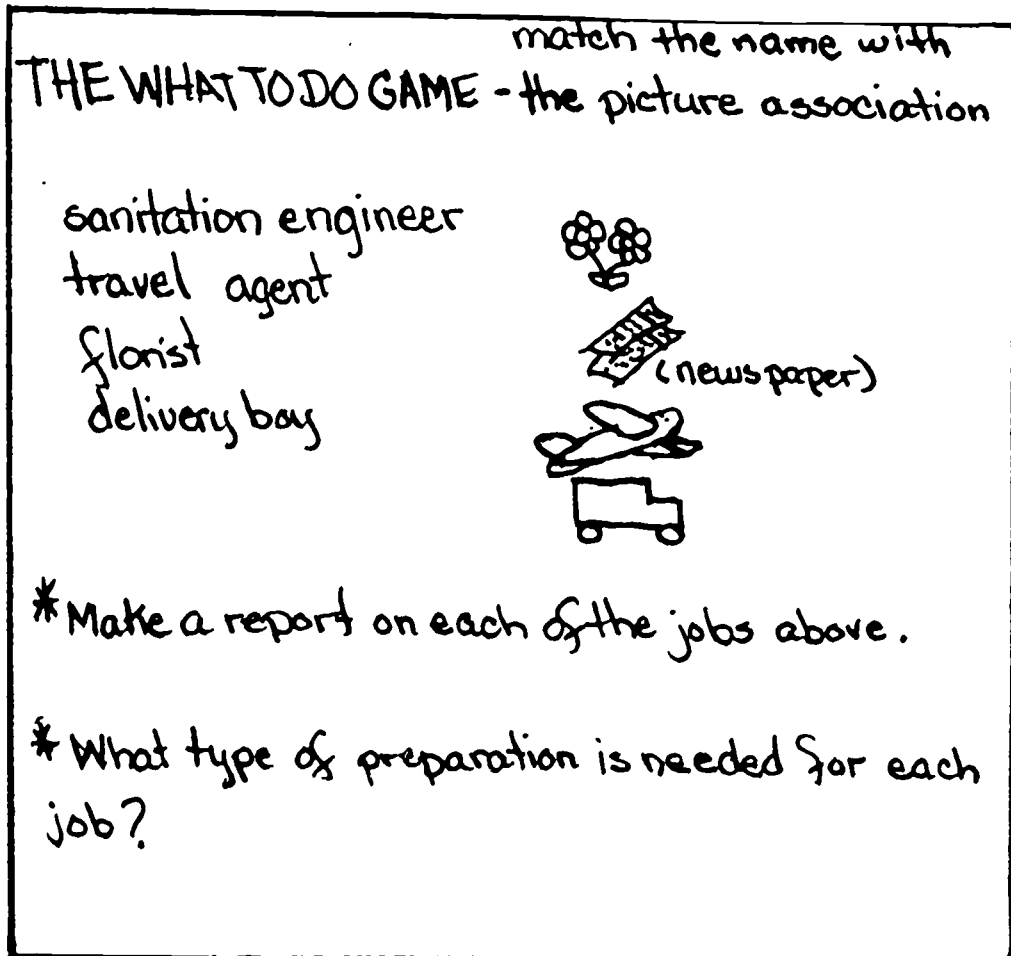 match the name with
THE WHAT TO DO GAME - the picture association
sanitation engineer
travel agent
florist
delivery boy
(newspaper)
*Make a report on each of the jobs above.
*What type of preparation is needed for each
job?